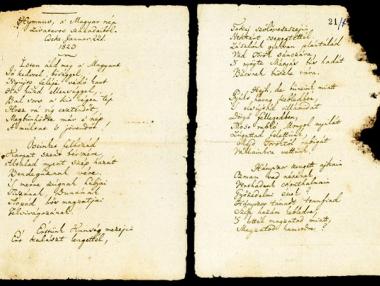 Hymnus, a' Magyar nép
zivataros századaiból.
Cseke, Januar. 22d.
1823
Isten áldd meg a' Magyart
Jó kedvvel, bőséggel,
Nyújts feléje védő kart
Ha küzd ellenséggel;
Bal sors a' kit régen tép
Hozz rá víg esztendőt,
Megbűnhődte már e' nép
A' multat 's jövendőt.
Őseinket felhozád
Kárpát szent bérczére,
Általad nyert szép hazát
Bendegúznak vére.
'S merre zúgnak habjai
Tiszának, Dunának,
Árpád hős magzatjai
Felvirágozának.
Értünk Kunság mezein
Ért kalászt lengettél,
21/
Tokaj szőlővesszein
Nektárt csepegtettél.
Zászlónk gyakran plántálád
Vad Török sánczára,
'S nyögte Mátyás bús hadát
Bécsnek büszke vára.
Hajh, de bűneink miatt
Gyúlt harag kebledben,
'S elsújtád villámidat
Dörgő fellegedben,
Most rabló Mongol nyilát
Zúgattad felettünk,
Majd Töröktől rabigát
Vállainkra vettünk.
Hányszor zengett ajkain
Ozman vad népének,
Vert hadunk csonthalmain
Győzedelmi ének!
Hányszor támadt tenfiad
Szép hazám kebledre,
'S lettél magzatod miatt,
Magzatod hamvedre?